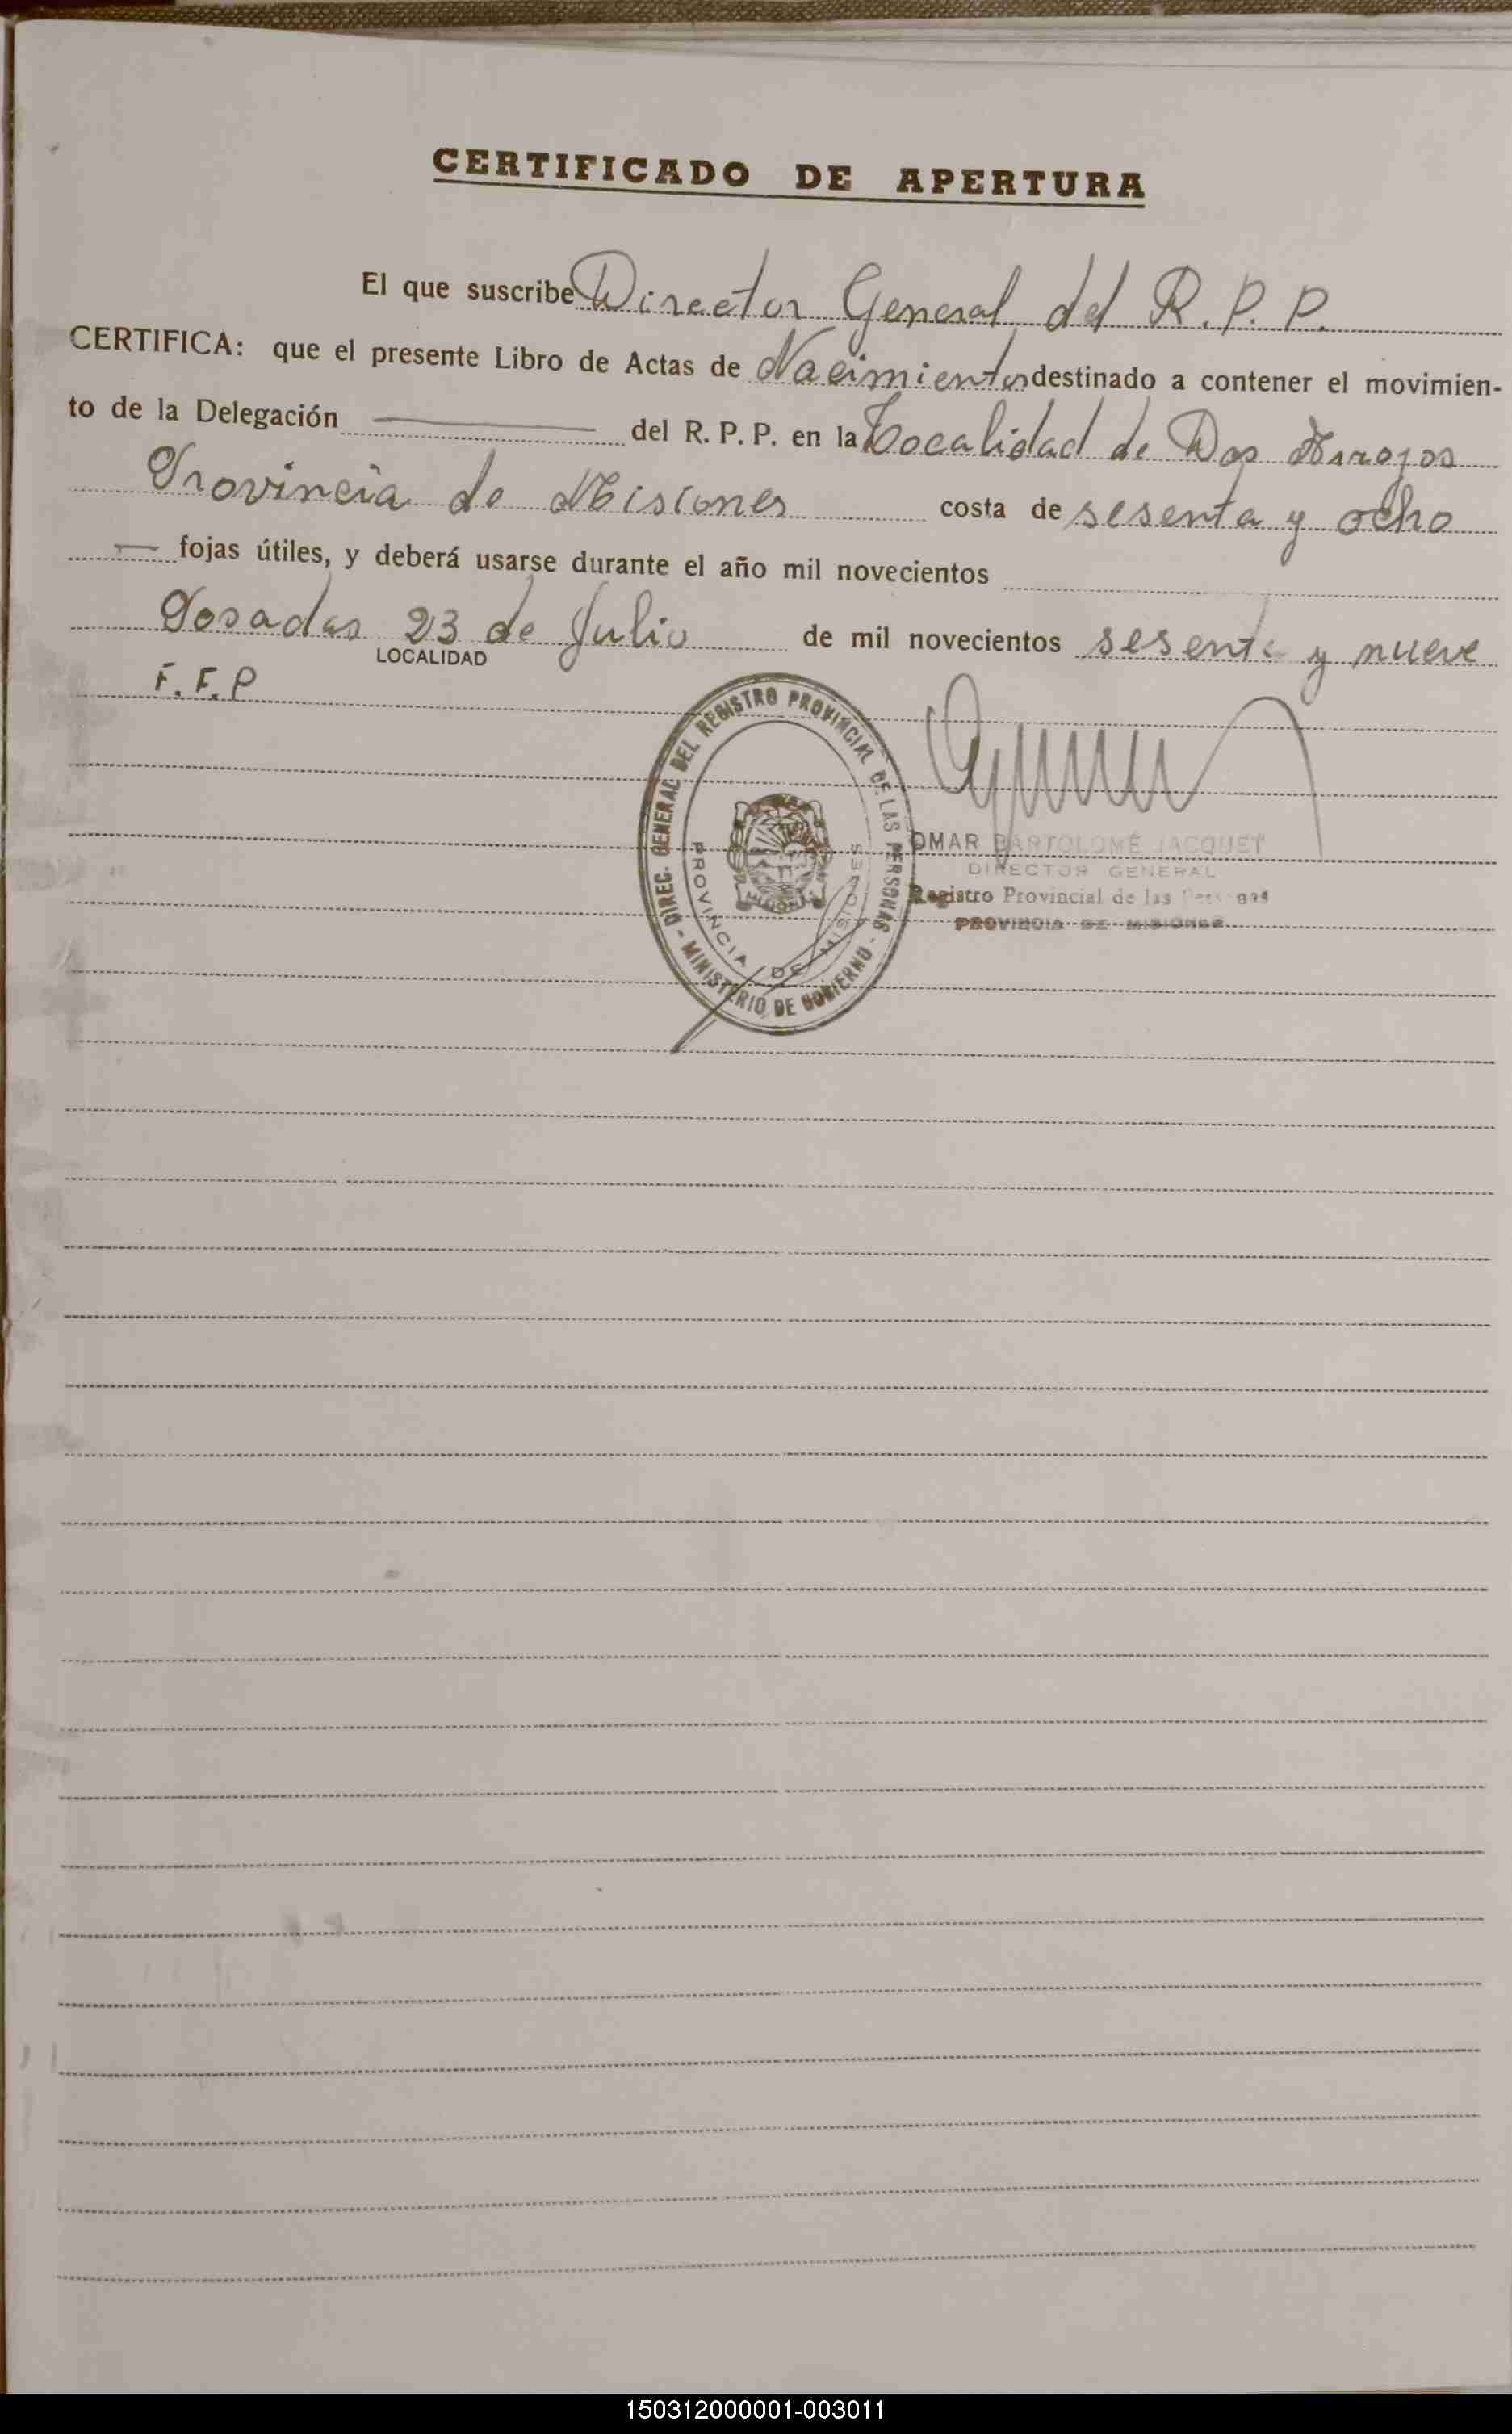 CERTIFICADO DE APERTURA
El que suscribe Director General del R. P. P.
CERTIFICA: que el presente Libro de Actas de Nacimientos destinado a contener el movimien-
to de la Delegación ——— del R. P. P. en la Localidad de Dos Arroyos
Provincia de Misiones costa de sesenta y ocho
— fojas útiles, y deberá usarse durante el año mil novecientos
Posadas 23 de Julio de mil novecientos sesenta y nueve
LOCALIDAD
F. F. P
DIREC. GENERAL DEL REGISTRO PROVINCIAL DE LAS PERSONAS - MINISTERIO DE GOBIERNO -
PROVINCIA DE MISIONES
OMAR BARTOLOMÉ JACQUET
DIRECTOR GENERAL
Registro Provincial de las Personas
PROVINCIA DE MISIONES
150312000001-003011